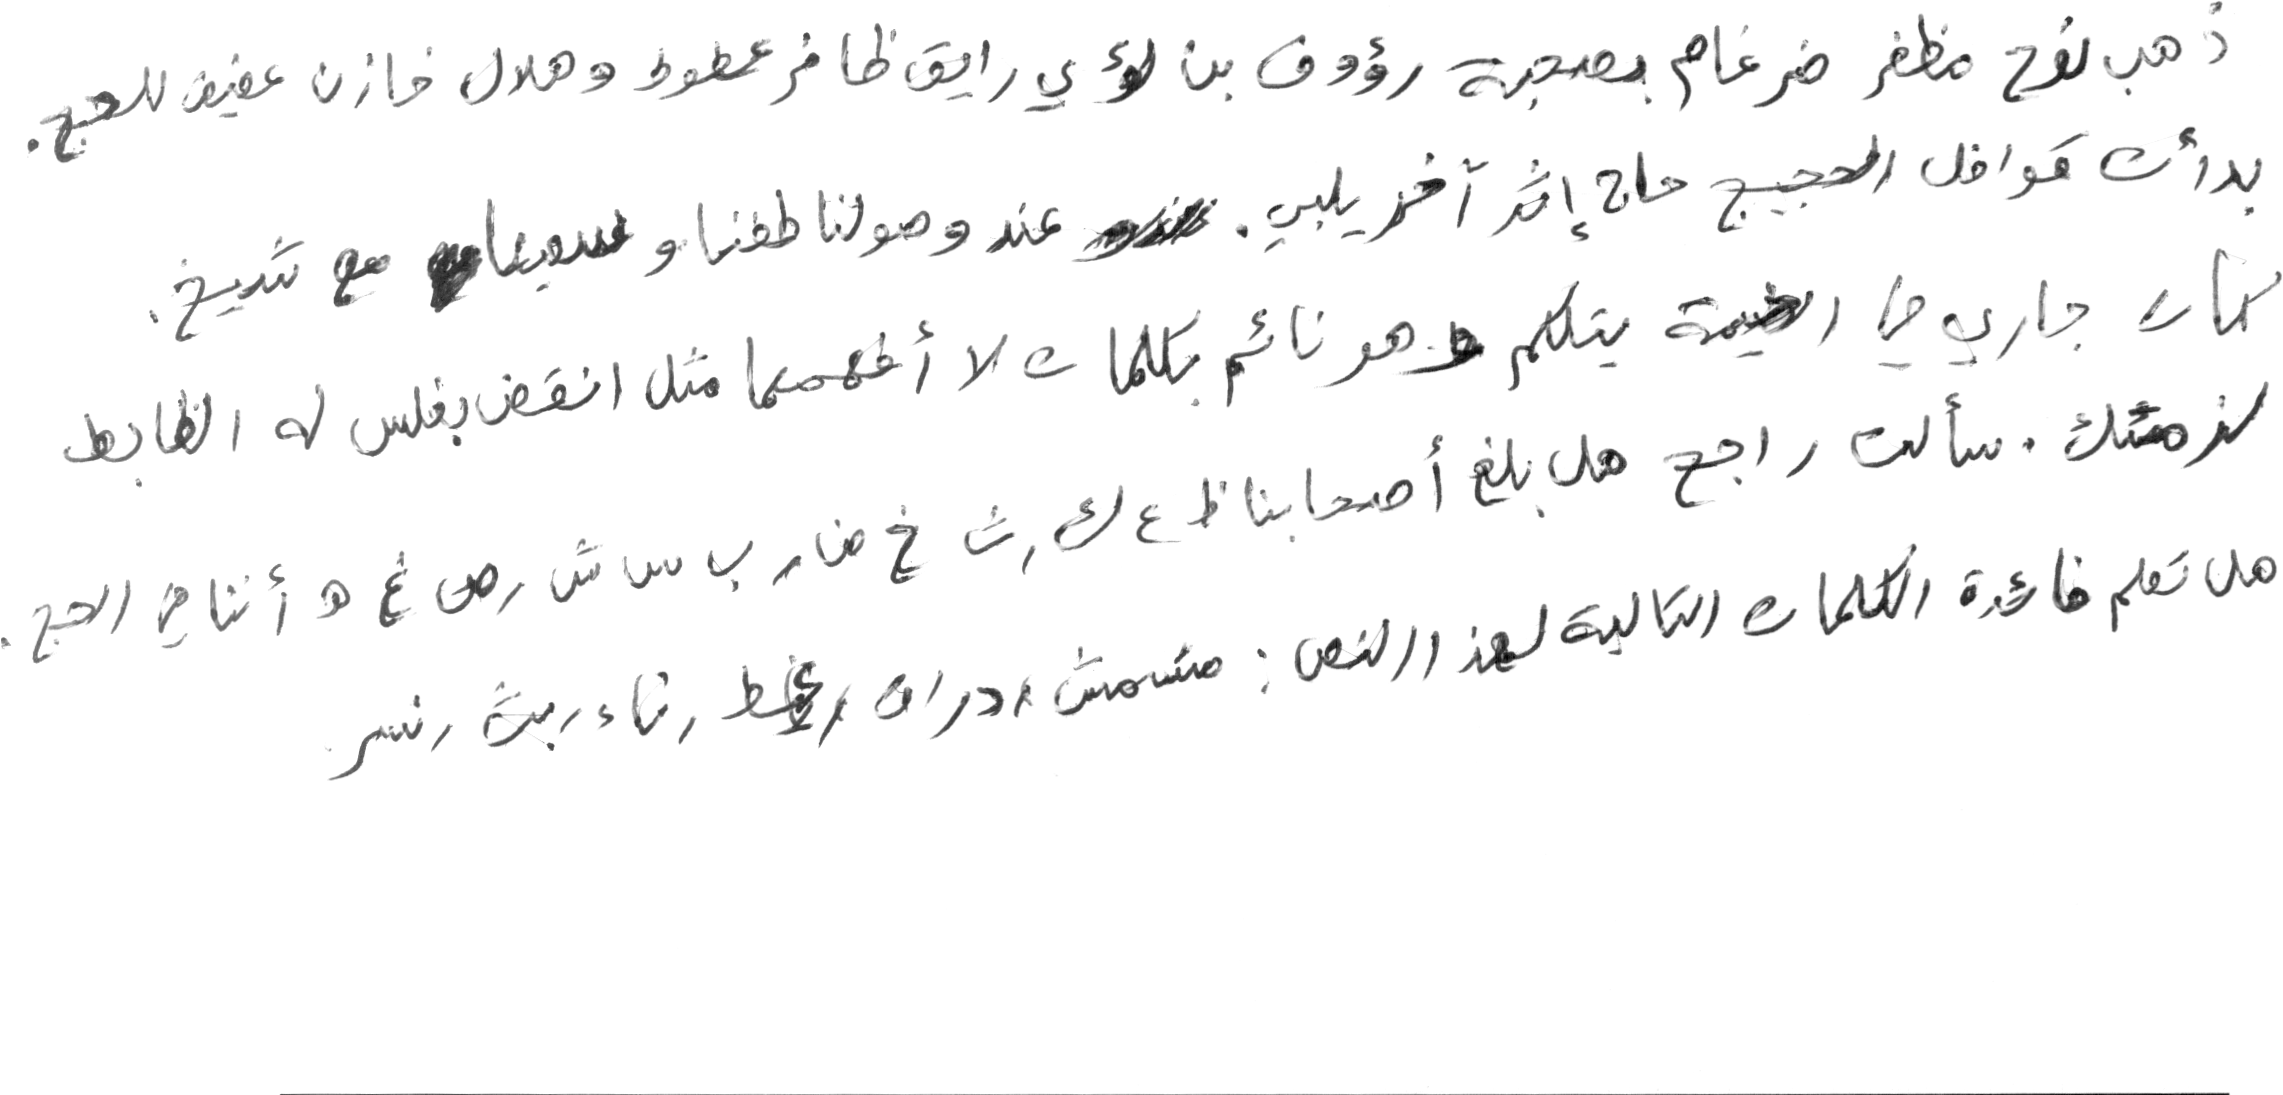 ذهب نوح مظفر ضرغام بصحبة رؤوف بن لؤي رايق ظافر عطوط وهلال خازن عفيف للحج.
بدأت قوافل الحجيج حاج إثر آخر يلبي. عند وصولنا طفنا وسعينا مع شيخ.
كان جاري في الخيمة يتكلم وهو نائم بكلمات لا أفهمها مثل انقض بغلس له الظابط
لذ مشك. سألت راجح هل بلغ أصحابنا ظ ع ك, ث خ ض, ب س ش, ص غ ه أننا في الحج.
هل تعلم فائدة الكلمات التالية لهذا النص: مشمش, دراق, غط, ثاء, بث, نسر